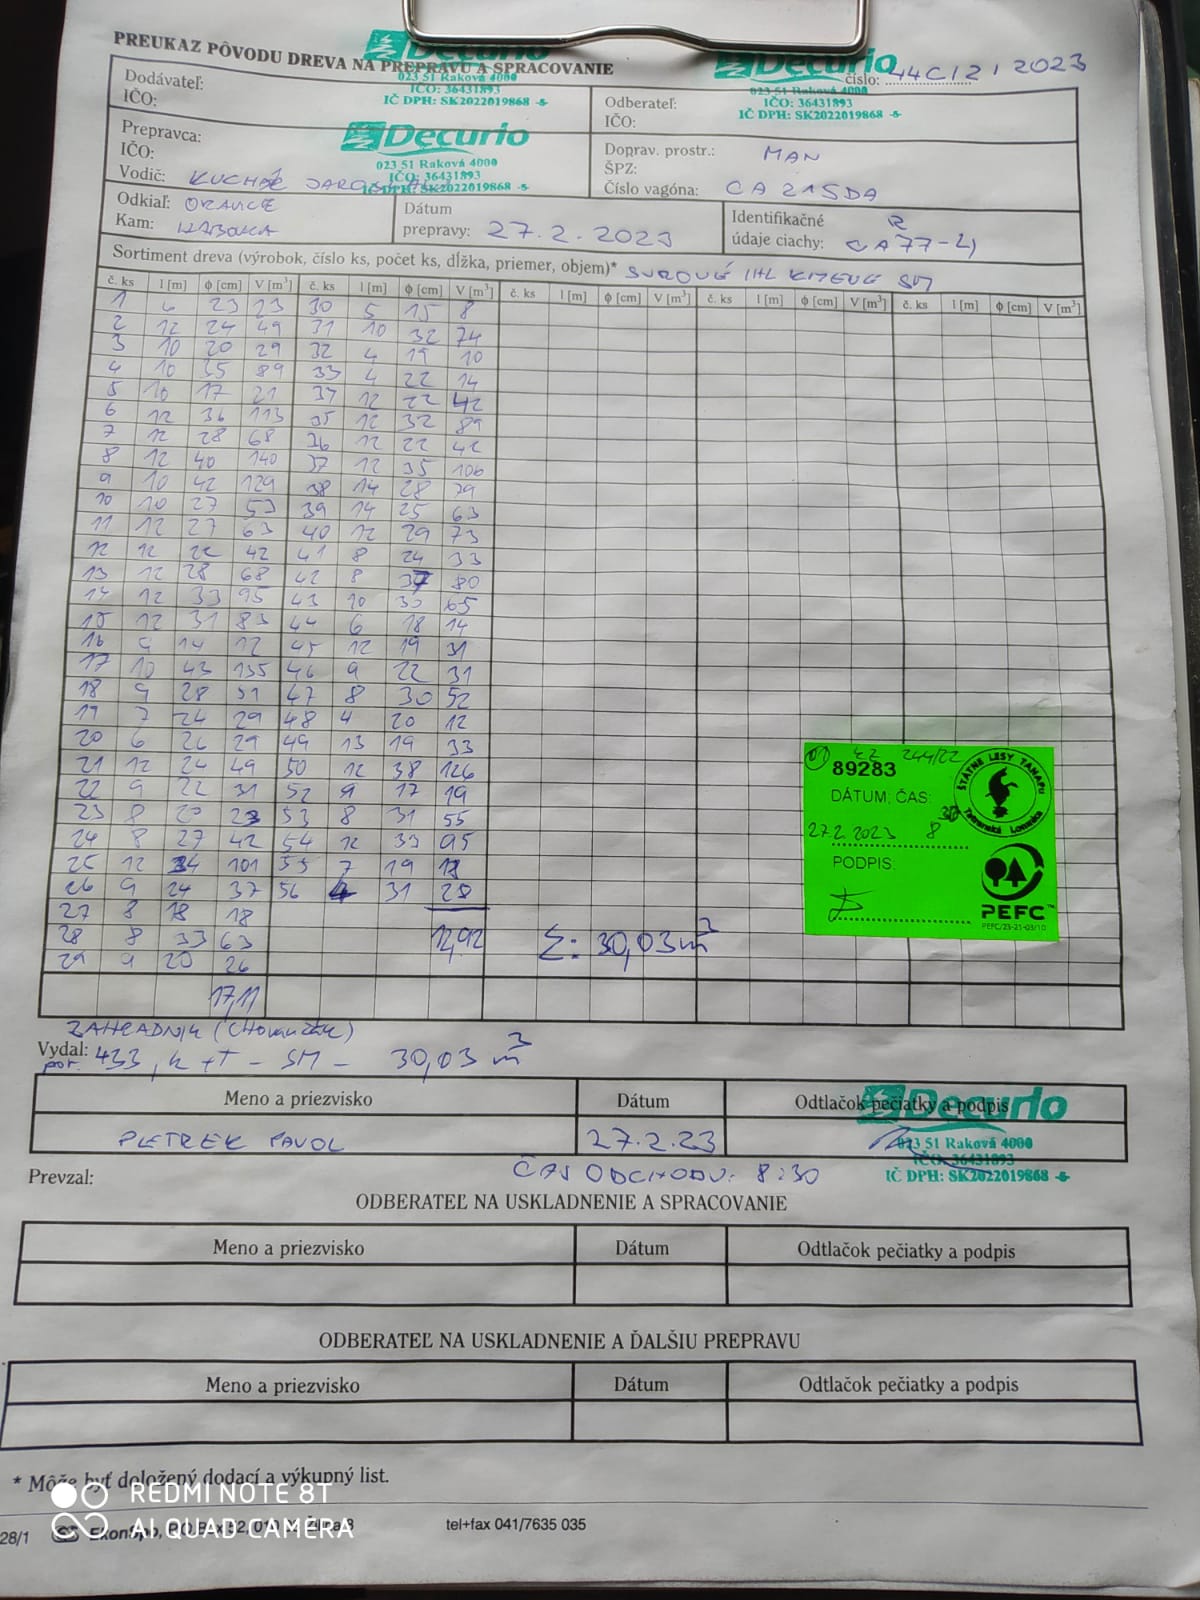 PREUKAZ PÔVODU DREVA NA PREPRAVU A SPRACOVANIE
Decurio
023 51 Raková 4000
IČO: 36431893
IČ DPH: SK2022019868 -5-
číslo: 44C/2/2023
Dodávateľ:
IČO:
Odberateľ:
IČO:
Decurio
023 51 Raková 4000
IČO: 36431893
IČ DPH: SK2022019868 -5-
Prepravca:
IČO:
Vodič: KUCHÁR
Decurio
023 51 Raková 4000
IČO: 36431893
IČ DPH: SK2022019868 -5-
Doprav. prostr.: MAN
ŠPZ:
Číslo vagóna: CA 215DA
Odkiaľ: ORAVICE
Kam:
Dátum
prepravy: 27.2.2023
Identifikačné
údaje ciachy: CA77-4
Sortiment dreva (výrobok, číslo ks, počet ks, dĺžka, priemer, objem)* SUROVÉ IHL KMENE SM
č. ks l [m] ϕ [cm] V [m³] č. ks l [m] ϕ [cm] V [m³] č. ks l [m] ϕ [cm] V [m³] č. ks l [m] ϕ [cm] V [m³] č. ks l [m] ϕ [cm] V [m³]
1 6 23 23 30 5 15 8
2 12 24 49 31 10 32 74
3 10 20 29 32 4 19 10
4 10 35 89 33 4 22 14
5 10 17 21 34 12 22 42
6 12 36 113 35 12 32 89
7 12 28 68 36 12 22 42
8 12 40 140 37 12 35 106
9 10 42 129 38 14 28 79
10 10 27 53 39 14 25 63
11 12 27 63 40 12 29 73
12 12 22 42 41 8 24 33
13 12 28 68 42 8 37 80
14 12 33 95 43 10 30 65
15 12 31 83 44 6 18 14
16 9 14 12 45 12 19 31
17 10 43 135 46 9 22 31
18 9 28 51 47 8 30 52
19 7 24 29 48 4 20 12
20 6 26 29 49 13 19 33
21 12 24 49 50 12 38 126
22 9 22 31 52 9 17 19
23 8 20 23 53 8 31 55
24 8 27 42 54 12 33 95
25 12 34 101 55 7 19 18
26 9 24 37 56 4 31 28
27 8 18 18
28 8 33 63 12,92 Σ: 30,03 m³
29 9 20 26
17,11
89283
DÁTUM, ČAS:
27.2 2023 8 30
PODPIS:
ŠTÁTNE LESY TANAPu
Tatranská Lomnica
PEFC™
PEFC/23-21-03/10
Vydal:
por. 433, k+T - SM - 30,03 m³
Meno a priezvisko Dátum Odtlačok pečiatky a podpis
PLETREK PAVOL 27.2.23
Decurio
023 51 Raková 4000
IČO: 36431893
IČ DPH: SK2022019868 -5-
Prevzal:
ČAS ODCHODU: 8:30
ODBERATEĽ NA USKLADNENIE A SPRACOVANIE
Meno a priezvisko Dátum Odtlačok pečiatky a podpis
ODBERATEĽ NA USKLADNENIE A ĎALŠIU PREPRAVU
Meno a priezvisko Dátum Odtlačok pečiatky a podpis
* Môže byť doložený dodací a výkupný list.
REDMI NOTE 8T
AI QUAD CAMERA
28/1 tel+fax 041/7635 035